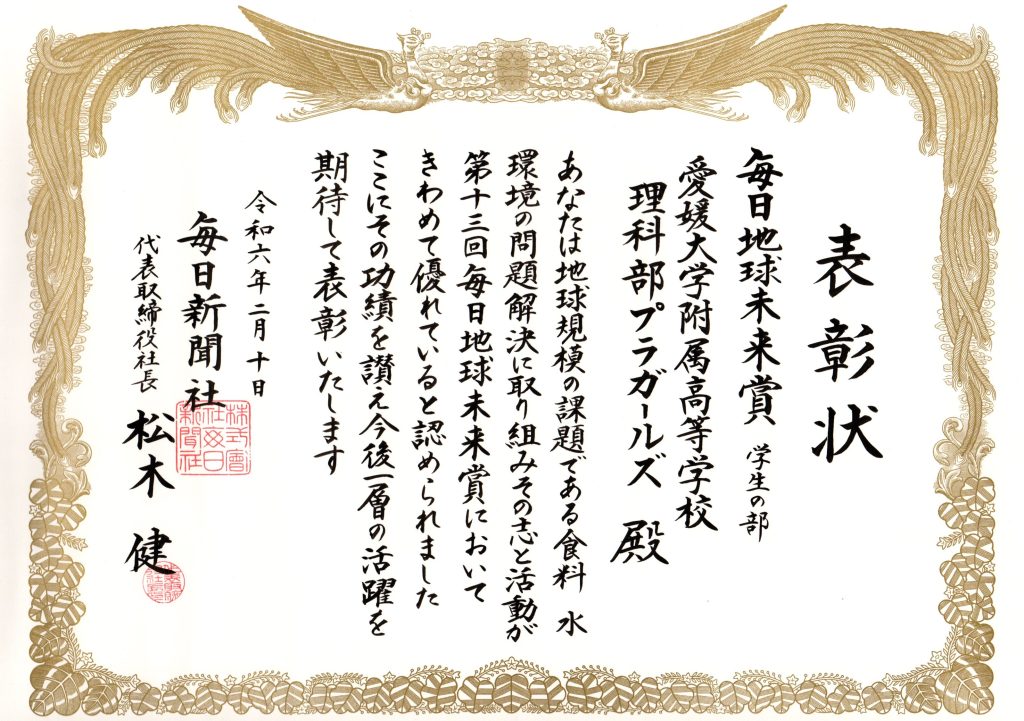 表彰状
毎日地球未来賞 学生の部
愛媛大学附属高等学校
理科部プラガールズ 殿
あなたは地球規模の課題である食料 水
環境の問題解決に取り組みその志と活動が
第十三回毎日地球未来賞において
きわめて優れていると認められました
ここにその功績を讃え今後一層の活躍を
期待して表彰いたします
令和六年二月十日
毎日新聞社
代表取締役社長 松木 健
株式會社毎日新聞社